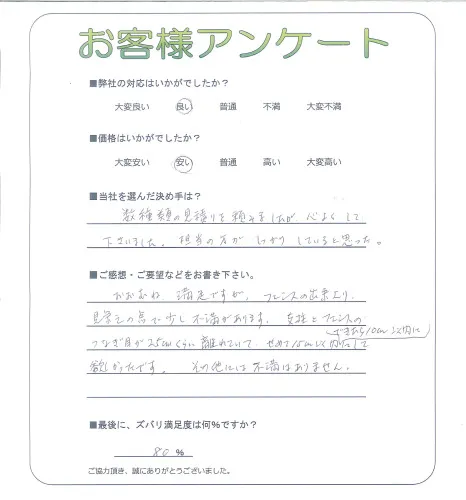 お客様アンケート
■弊社の対応はいかがでしたか？
大変良い 良い 普通 不満 大変不満
■価格はいかがでしたか？
大変安い 安い 普通 高い 大変高い
■当社を選んだ決め手は？
数種類の見積りを頼みましたが 心よくして
下さいました。担当の方が しっかりしていると思った。
■ご感想・ご要望などをお書き下さい。
おおむね、満足ですが、フェンスの出来上り、
見栄えの点で少し不満があります。支柱とフェンスの
できたら10cm以内に
つなぎ目が25cmくらい離れていて、せめて15cm以内にして
欲しかったです。 その他には不満はありません。
■最後に、ズバリ満足度は何%ですか？
80 %
ご協力頂き、誠にありがとうございました。